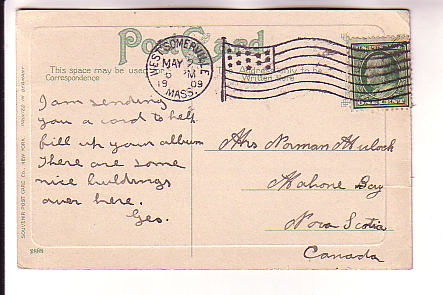 Post Card
This space may be used for
Correspondence
Address only to be
Written here
WEST SOMERVILLE
MAY
6 PM
19 09
MASS.
I am sending
you a card to help
fill up your album
There are some
nice buildings
over here.
Geo.
Mrs Norman Mulock
Mahone Bay
Nova Scotia
Canada
SOUVENIR POST CARD CO. NEW YORK. PRINTED IN GERMANY.